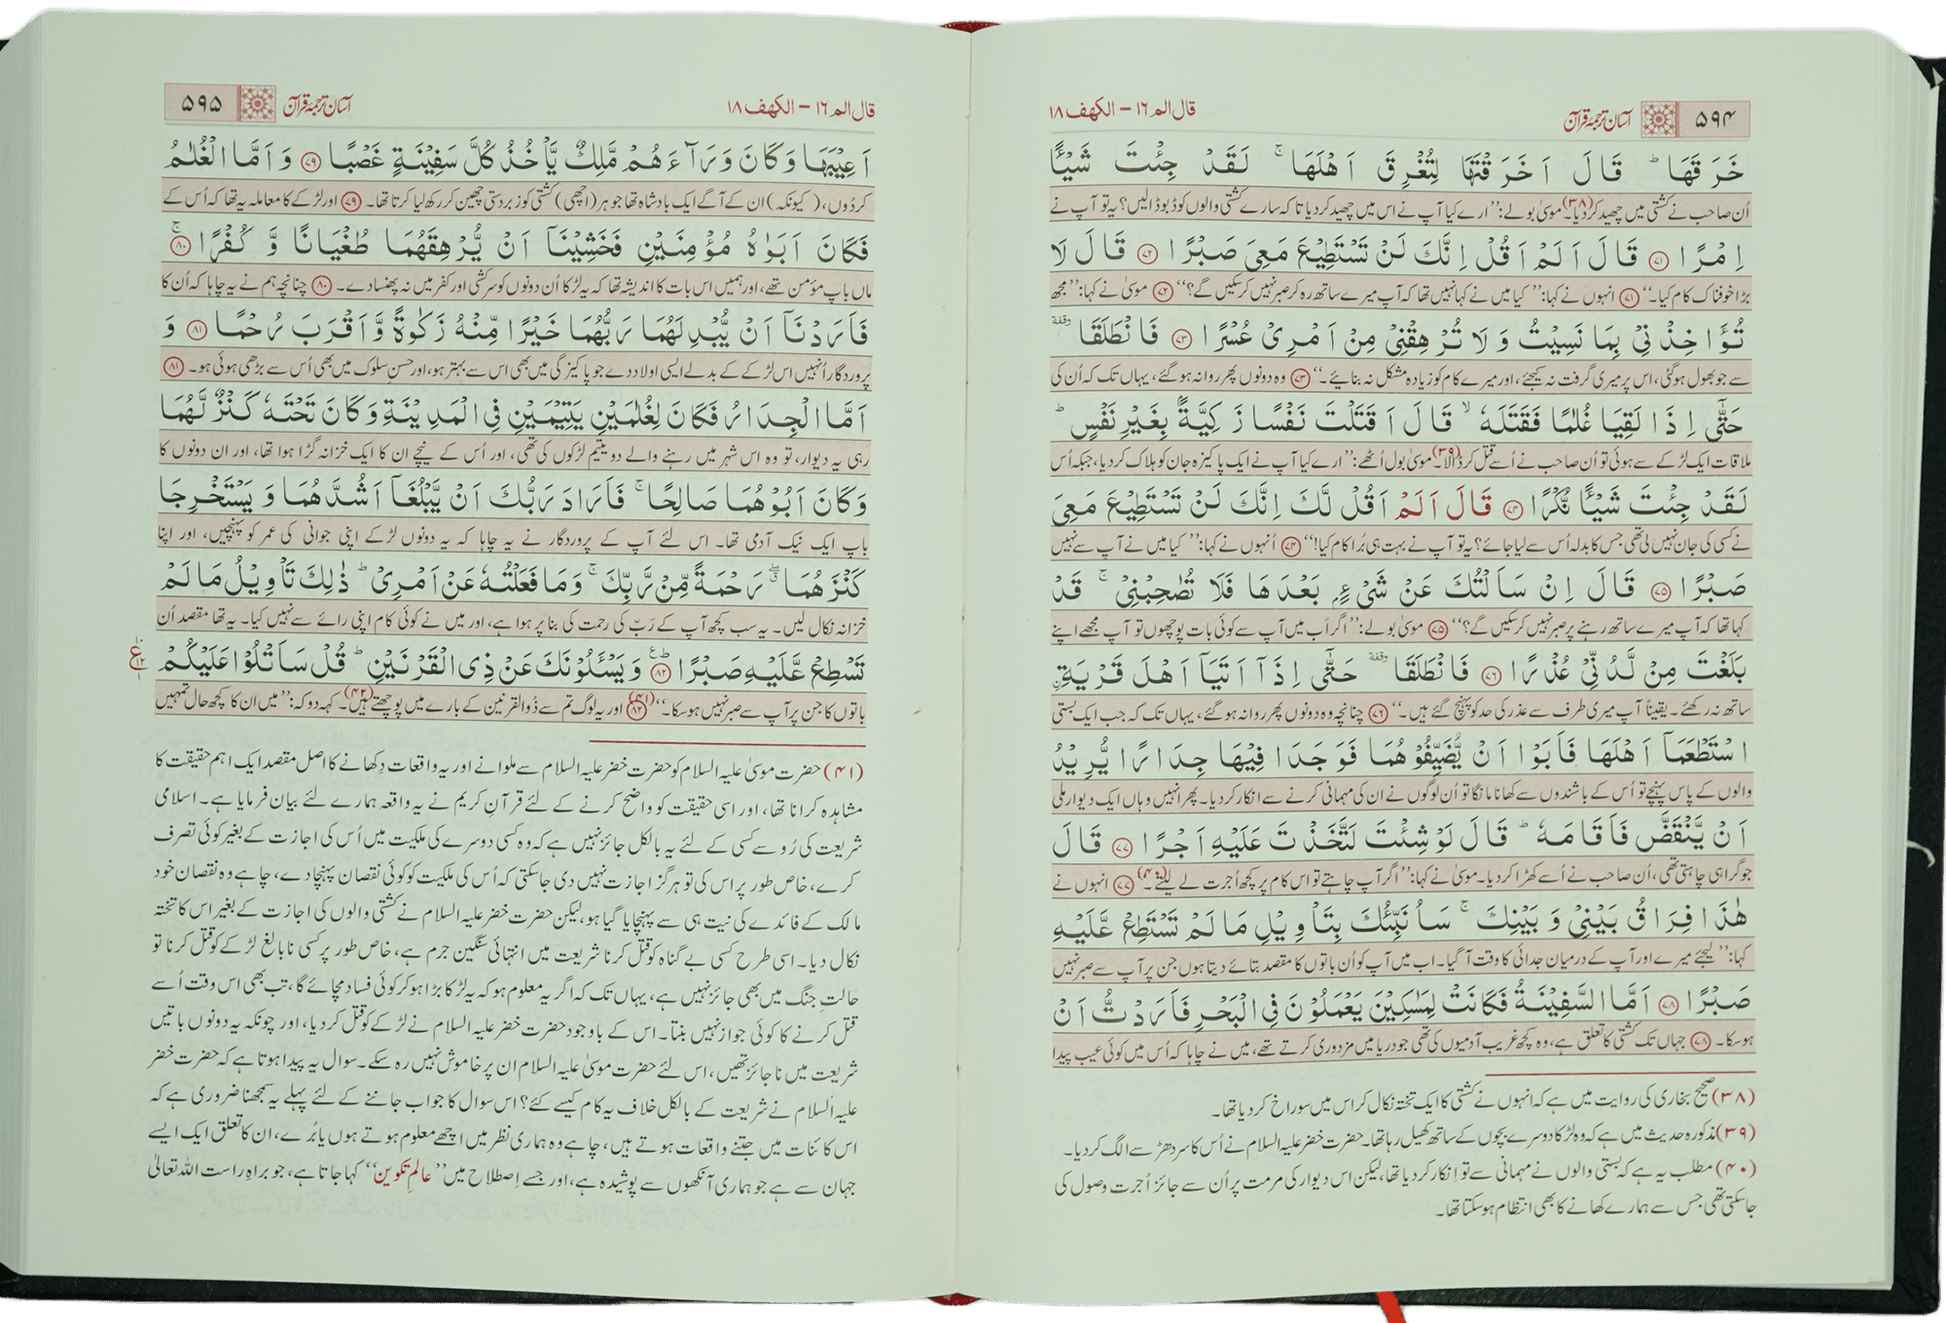 ۵۹۴ آسان ترجمۂ قرآن قال الم ۱۶ – الکہف ۱۸
خَرَقَهَا ؕ قَالَ اَخَرَقْتَهَا لِتُغْرِقَ اَهْلَهَا ۚ لَقَدْ جِئْتَ شَیْـًٔا
اُن صاحب نے کشتی میں چھید کردیا۔(۳۸) موسیٰ بولے: ’’ارے کیا آپ نے اس میں چھید کردیا تاکہ سارے کشتی والوں کو ڈبو ڈالیں؟ یہ تو آپ نے
اِمْرًا ﴿۷۱﴾ قَالَ اَلَمْ اَقُلْ اِنَّكَ لَنْ تَسْتَطِیْعَ مَعِیَ صَبْرًا ﴿۷۲﴾ قَالَ لَا
بڑا خوفناک کام کیا۔‘‘ ﴿۷۱﴾ انہوں نے کہا: ’’کیا میں نے کہا نہیں تھا کہ آپ میرے ساتھ رہ کر صبر نہیں کرسکیں گے؟‘‘ ﴿۷۲﴾ موسیٰ نے کہا: ’’مجھ
تُؤَاخِذْنِیْ بِمَا نَسِیْتُ وَ لَا تُرْهِقْنِیْ مِنْ اَمْرِیْ عُسْرًا ﴿۷۳﴾ فَانْطَلَقَا ٝ وقفة
سے جو بھول ہوگئی، اس پر میری گرفت نہ کیجئے، اور میرے کام کو زیادہ مشکل نہ بنائیے۔‘‘ ﴿۷۳﴾ وہ دونوں پھر روانہ ہوگئے، یہاں تک کہ اُن کی
حَتّٰۤی اِذَا لَقِیَا غُلٰمًا فَقَتَلَهٗ ۙ قَالَ اَقَتَلْتَ نَفْسًا زَكِیَّةًۢ بِغَیْرِ نَفْسٍ ؕ
ملاقات ایک لڑکے سے ہوئی تو اُن صاحب نے اُسے قتل کر ڈالا۔(۳۹) موسیٰ بول اُٹھے: ’’ارے کیا آپ نے ایک پاکیزہ جان کو ہلاک کردیا، جبکہ اُس
لَقَدْ جِئْتَ شَیْـًٔا نُّكْرًا ﴿۷۴﴾ قَالَ اَلَمْ اَقُلْ لَّكَ اِنَّكَ لَنْ تَسْتَطِیْعَ مَعِیَ
نے کسی کی جان نہیں لی تھی جس کا بدلہ اُس سے لیا جائے؟ یہ تو آپ نے بہت ہی بُرا کام کیا!‘‘ ﴿۷۴﴾ اُنہوں نے کہا: ’’کیا میں نے آپ سے نہیں
صَبْرًا ﴿۷۵﴾ قَالَ اِنْ سَاَلْتُكَ عَنْ شَیْءٍۭ بَعْدَهَا فَلَا تُصٰحِبْنِیْ ۚ قَدْ
کہا تھا کہ آپ میرے ساتھ رہنے پر صبر نہیں کرسکیں گے؟‘‘ ﴿۷۵﴾ موسیٰ بولے: ’’اگر اَب میں آپ سے کوئی بات پوچھوں تو آپ مجھے اپنے
بَلَغْتَ مِنْ لَّدُنِّیْ عُذْرًا ﴿۷۶﴾ فَانْطَلَقَا ٝ وقفة حَتّٰۤی اِذَاۤ اَتَیَاۤ اَهْلَ قَرْیَةِ
ساتھ نہ رکھئے۔ یقیناً آپ میری طرف سے عذر کی حد کو پہنچ گئے ہیں۔‘‘ ﴿۷۶﴾ چنانچہ وہ دونوں پھر روانہ ہوگئے، یہاں تک کہ جب ایک بستی
اسْتَطْعَمَاۤ اَهْلَهَا فَاَبَوْا اَنْ یُّضَیِّفُوْهُمَا فَوَجَدَا فِیْهَا جِدَارًا یُّرِیْدُ
والوں کے پاس پہنچے تو اُس کے باشندوں سے کھانا مانگا تو اُن لوگوں نے ان کی مہمانی کرنے سے انکار کردیا۔ پھر انہیں وہاں ایک دیوار ملی
اَنْ یَّنْقَضَّ فَاَقَامَهٗ ؕ قَالَ لَوْ شِئْتَ لَتَّخَذْتَ عَلَیْهِ اَجْرًا ﴿۷۷﴾ قَالَ
جو گرا ہی چاہتی تھی، اُن صاحب نے اُسے کھڑا کردیا۔ موسیٰ نے کہا: ’’اگر آپ چاہتے تو اس کام پر کچھ اُجرت لے لیتے۔‘‘(۴۰) ﴿۷۷﴾ انہوں نے
هٰذَا فِرَاقُ بَیْنِیْ وَ بَیْنِكَ ۚ سَاُنَبِّئُكَ بِتَاْوِیْلِ مَا لَمْ تَسْتَطِعْ عَّلَیْهِ
کہا: ’’لیجئے میرے اور آپ کے درمیان جدائی کا وقت آگیا۔ اب میں آپ کو اُن باتوں کا مقصد بتائے دیتا ہوں جن پر آپ سے صبر نہیں
صَبْرًا ﴿۷۸﴾ اَمَّا السَّفِیْنَةُ فَكَانَتْ لِمَسٰكِیْنَ یَعْمَلُوْنَ فِی الْبَحْرِ فَاَرَدْتُّ اَنْ
ہوسکا۔ ﴿۷۸﴾ جہاں تک کشتی کا تعلق ہے، وہ کچھ غریب آدمیوں کی تھی جو دریا میں مزدوری کرتے تھے، میں نے چاہا کہ اُس میں کوئی عیب پیدا
(۳۸) صحیح بخاری کی روایت میں ہے کہ انہوں نے کشتی کا ایک تختہ نکال کر اس میں سوراخ کردیا تھا۔
(۳۹) مذکورہ حدیث میں ہے کہ وہ لڑکا دوسرے بچوں کے ساتھ کھیل رہا تھا۔ حضرت خضر علیہ السلام نے اُس کا سر دھڑ سے الگ کردیا۔
(۴۰) مطلب یہ ہے کہ بستی والوں نے مہمانی سے تو اِنکار کردیا تھا، لیکن اس دیوار کی مرمت پر اُن سے جائز اُجرت وصول کی
جاسکتی تھی جس سے ہمارے کھانے کا بھی انتظام ہوسکتا تھا۔
قال الم ۱۶ – الکہف ۱۸ آسان ترجمۂ قرآن ۵۹۵
اَعِیْبَهَا وَ كَانَ وَرَآءَهُمْ مَّلِكٌ یَّاْخُذُ كُلَّ سَفِیْنَةٍ غَصْبًا ﴿۷۹﴾ وَ اَمَّا الْغُلٰمُ
کردُوں، (کیونکہ) ان کے آگے ایک بادشاہ تھا جو ہر (اچھی) کشتی کو زبردستی چھین کر رکھ لیا کرتا تھا۔ ﴿۷۹﴾ اور لڑکے کا معاملہ یہ تھا کہ اُس کے
فَكَانَ اَبَوٰهُ مُؤْمِنَیْنِ فَخَشِیْنَاۤ اَنْ یُّرْهِقَهُمَا طُغْیَانًا وَّ كُفْرًا ۚ ﴿۸۰﴾
ماں باپ مؤمن تھے، اور ہمیں اس بات کا اندیشہ تھا کہ یہ لڑکا اُن دونوں کو سرکشی اور کفر میں نہ پھنسا دے۔ ﴿۸۰﴾ چنانچہ ہم نے یہ چاہا کہ اُن کا
فَاَرَدْنَاۤ اَنْ یُّبْدِلَهُمَا رَبُّهُمَا خَیْرًا مِّنْهُ زَكٰوةً وَّ اَقْرَبَ رُحْمًا ﴿۸۱﴾ وَ
پروردگار اُنہیں اس لڑکے کے بدلے ایسی اولاد دے جو پاکیزگی میں بھی اس سے بہتر ہو، اور حسنِ سلوک میں بھی اُس سے بڑھی ہوئی ہو۔ ﴿۸۱﴾
اَمَّا الْجِدَارُ فَكَانَ لِغُلٰمَیْنِ یَتِیْمَیْنِ فِی الْمَدِیْنَةِ وَ كَانَ تَحْتَهٗ كَنْزٌ لَّهُمَا
رہی یہ دیوار، تو وہ اس شہر میں رہنے والے دو یتیم لڑکوں کی تھی، اور اُس کے نیچے ان کا ایک خزانہ گڑا ہوا تھا، اور ان دونوں کا
وَ كَانَ اَبُوْهُمَا صَالِحًا ۚ فَاَرَادَ رَبُّكَ اَنْ یَّبْلُغَاۤ اَشُدَّهُمَا وَ یَسْتَخْرِجَا
باپ ایک نیک آدمی تھا۔ اس لئے آپ کے پروردگار نے یہ چاہا کہ یہ دونوں لڑکے اپنی جوانی کی عمر کو پہنچیں، اور اپنا
كَنْزَهُمَا ۖۗ رَحْمَةً مِّنْ رَّبِّكَ ۚ وَ مَا فَعَلْتُهٗ عَنْ اَمْرِیْ ؕ ذٰلِكَ تَاْوِیْلُ مَا لَمْ
خزانہ نکال لیں۔ یہ سب کچھ آپ کے رَبّ کی رحمت کی بنا پر ہوا ہے، اور میں نے کوئی کام اپنی رائے سے نہیں کیا۔ یہ تھا مقصد اُن
تَسْطِعْ عَّلَیْهِ صَبْرًا ﴿۸۲﴾ وَ یَسْـَٔلُوْنَكَ عَنْ ذِی الْقَرْنَیْنِ ؕ قُلْ سَاَتْلُوْا عَلَیْكُمْ
باتوں کا جن پر آپ سے صبر نہیں ہوسکا۔‘‘(۴۱) ﴿۸۲﴾ اور یہ لوگ تم سے ذُوالقرنین کے بارے میں پوچھتے ہیں۔(۴۲) کہہ دو کہ: ’’میں ان کا کچھ حال تمہیں
(۴۱) حضرت موسیٰ علیہ السلام کو حضرت خضر علیہ السلام سے ملوانے اور یہ واقعات دِکھانے کا اصل مقصد ایک اہم حقیقت کا
مشاہدہ کرانا تھا، اور اسی حقیقت کو واضح کرنے کے لئے قرآنِ کریم نے یہ واقعہ ہمارے لئے بیان فرمایا ہے۔ اسلامی
شریعت کی رُو سے کسی کے لئے یہ بالکل جائز نہیں ہے کہ وہ کسی دوسرے کی ملکیت میں اُس کی اجازت کے بغیر کوئی تصرف
کرے، خاص طور پر اس کی تو ہرگز اجازت نہیں دی جاسکتی کہ اُس کی ملکیت کو کوئی نقصان پہنچا دے، چاہے وہ نقصان خود
مالک کے فائدے کی نیت ہی سے پہنچایا گیا ہو، لیکن حضرت خضر علیہ السلام نے کشتی والوں کی اجازت کے بغیر اس کا تختہ
نکال دیا۔ اسی طرح کسی بے گناہ کو قتل کرنا شریعت میں انتہائی سنگین جرم ہے، خاص طور پر کسی نابالغ لڑکے کو قتل کرنا تو
حالتِ جنگ میں بھی جائز نہیں ہے، یہاں تک کہ اگر یہ معلوم ہو کہ یہ لڑکا بڑا ہو کر کوئی فساد مچائے گا، تب بھی اس وقت اُسے
قتل کرنے کا کوئی جواز نہیں بنتا۔ اس کے باوجود حضرت خضر علیہ السلام نے لڑکے کو قتل کردیا، اور چونکہ یہ دونوں باتیں
شریعت میں ناجائز تھیں، اس لئے حضرت موسیٰ علیہ السلام ان پر خاموش نہیں رہ سکے۔ سوال یہ پیدا ہوتا ہے کہ حضرت خضر
علیہ السلام نے شریعت کے بالکل خلاف یہ کام کیسے کئے؟ اس سوال کا جواب جاننے کے لئے پہلے یہ سمجھنا ضروری ہے کہ
اس کائنات میں جتنے واقعات ہوتے ہیں، چاہے وہ ہماری نظر میں اچھے معلوم ہوتے ہوں یا بُرے، ان کا تعلق ایک ایسے
جہان سے ہے جو ہماری آنکھوں سے پوشیدہ ہے، اور جسے اِصطلاح میں ’’عالمِ تکوین‘‘ کہا جاتا ہے، جو براہِ راست اللہ تعالیٰ